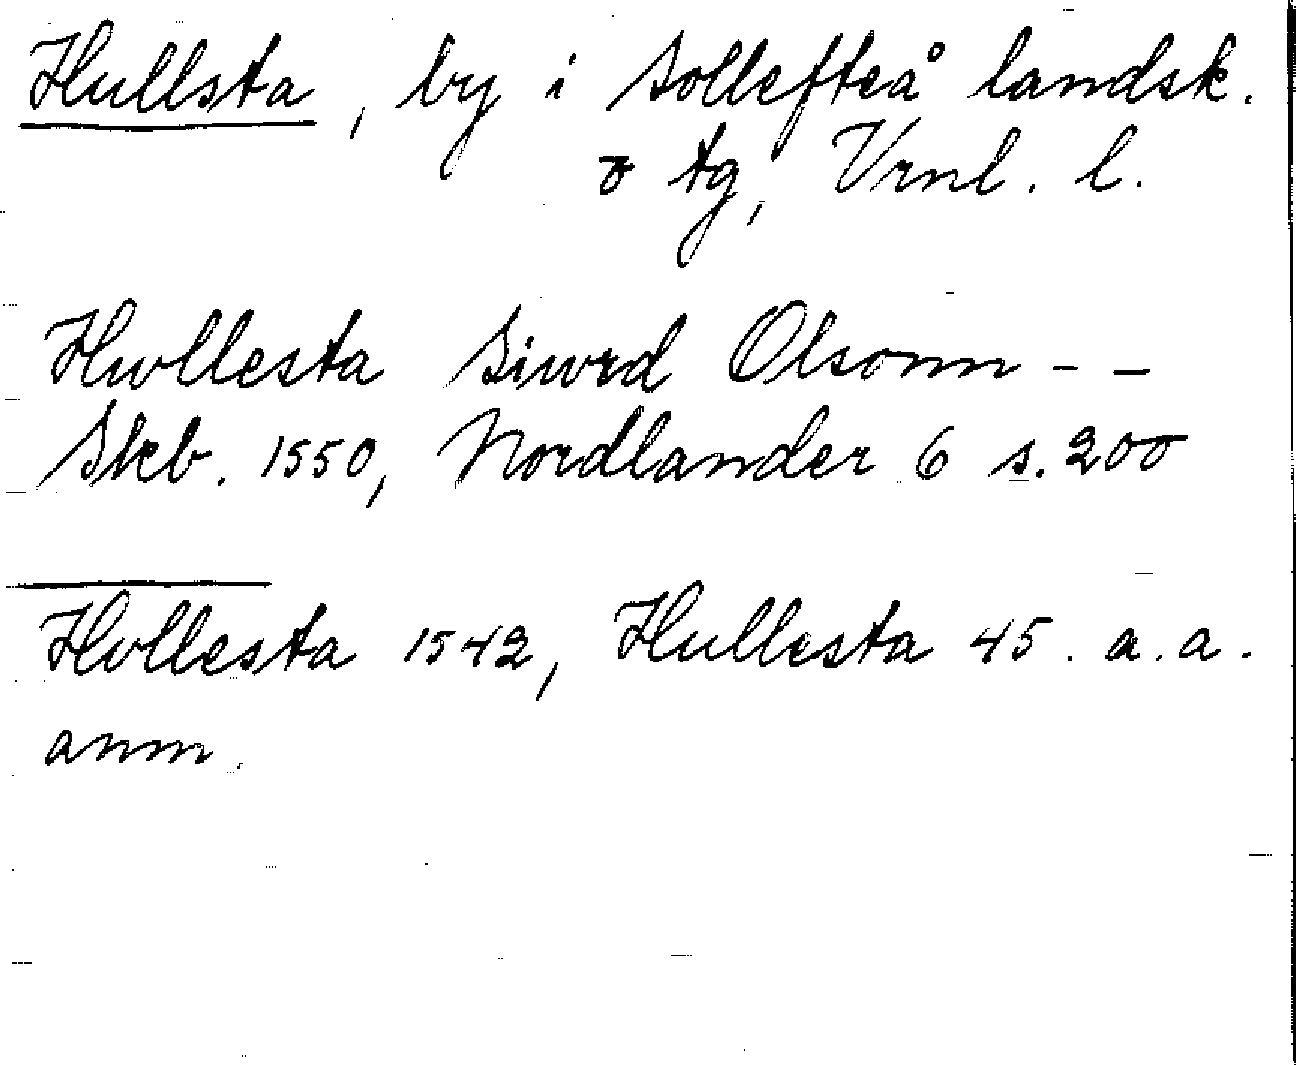 Hullsta, by i Sollefteå landsk.
o tg, Vrnl. l.
Hwllesta Siwrd Olsonn - -
Skb. 1550, Nordlander 6 s. 200
Hvllesta 1542, Hullesta 45. a.a.
anm.